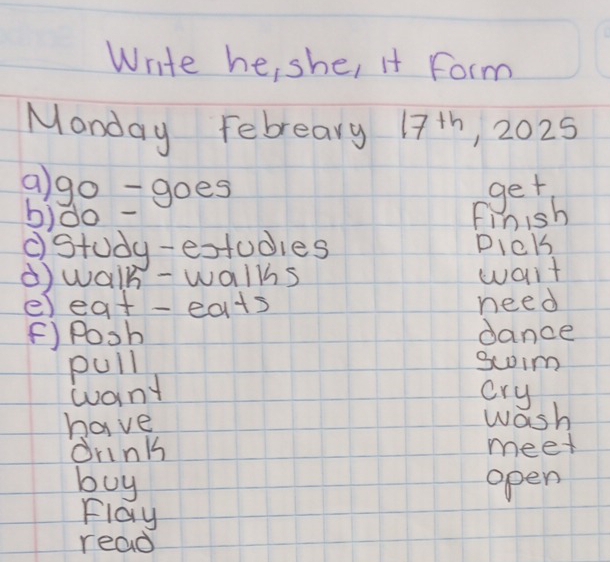 Write he, she, it Form
Monday Febreary 17th, 2025
a) go - goes
b) do -
c) Study - estudies
d) walk - walks
e) eat - eats
F) Posh
pull
want
have
drink
buy
Flay
read
get
Finish
Pick
wait
need
dance
swim
cry
wash
meet
open